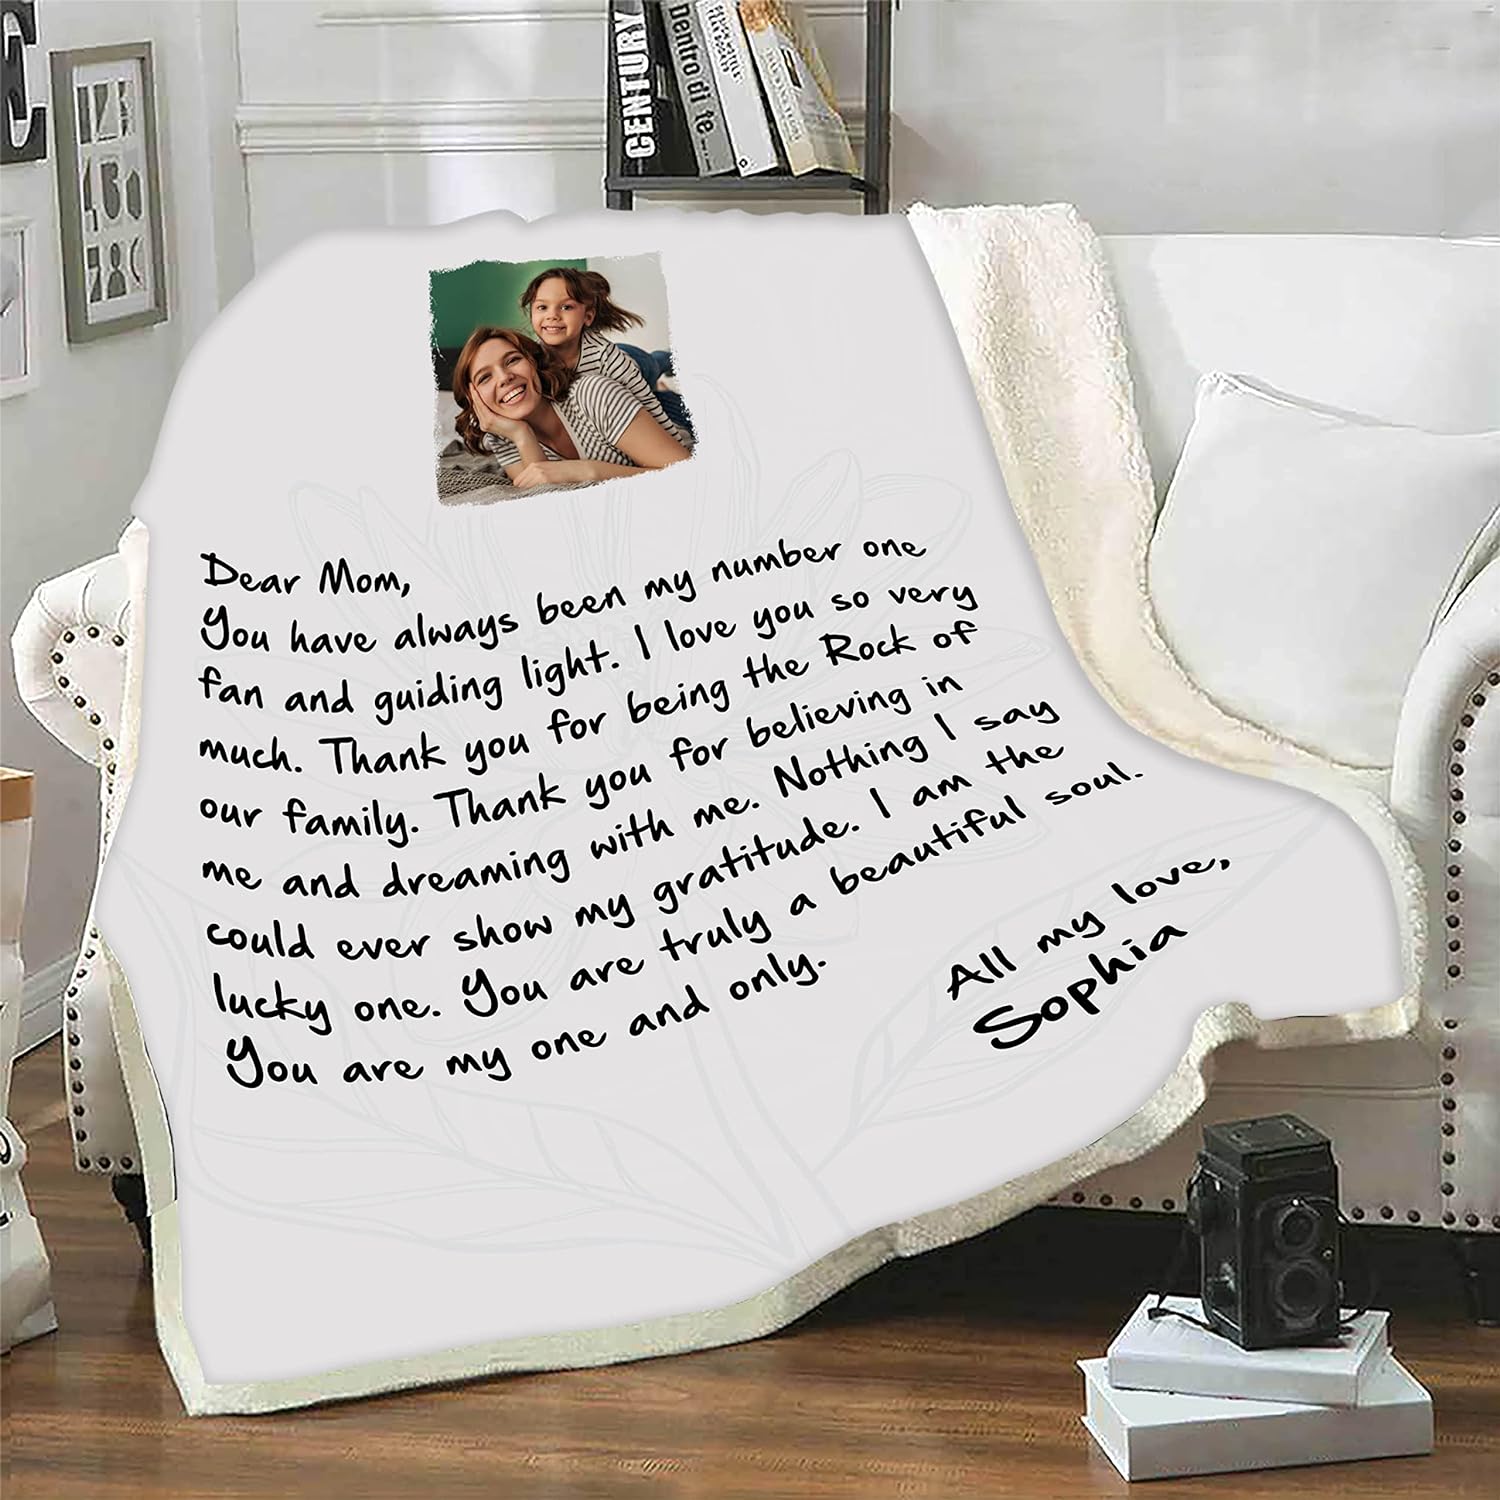 CENTURY
Dentro di te
Dear Mom,
You have always been my number one
fan and guiding light. I love you so very
much. Thank you for being the Rock of
our family. Thank you for believing in
me and dreaming with me. Nothing I say
could ever show my gratitude. I am the
lucky one. You are truly a beautiful soul.
You are my one and only.
All my love,
Sophia